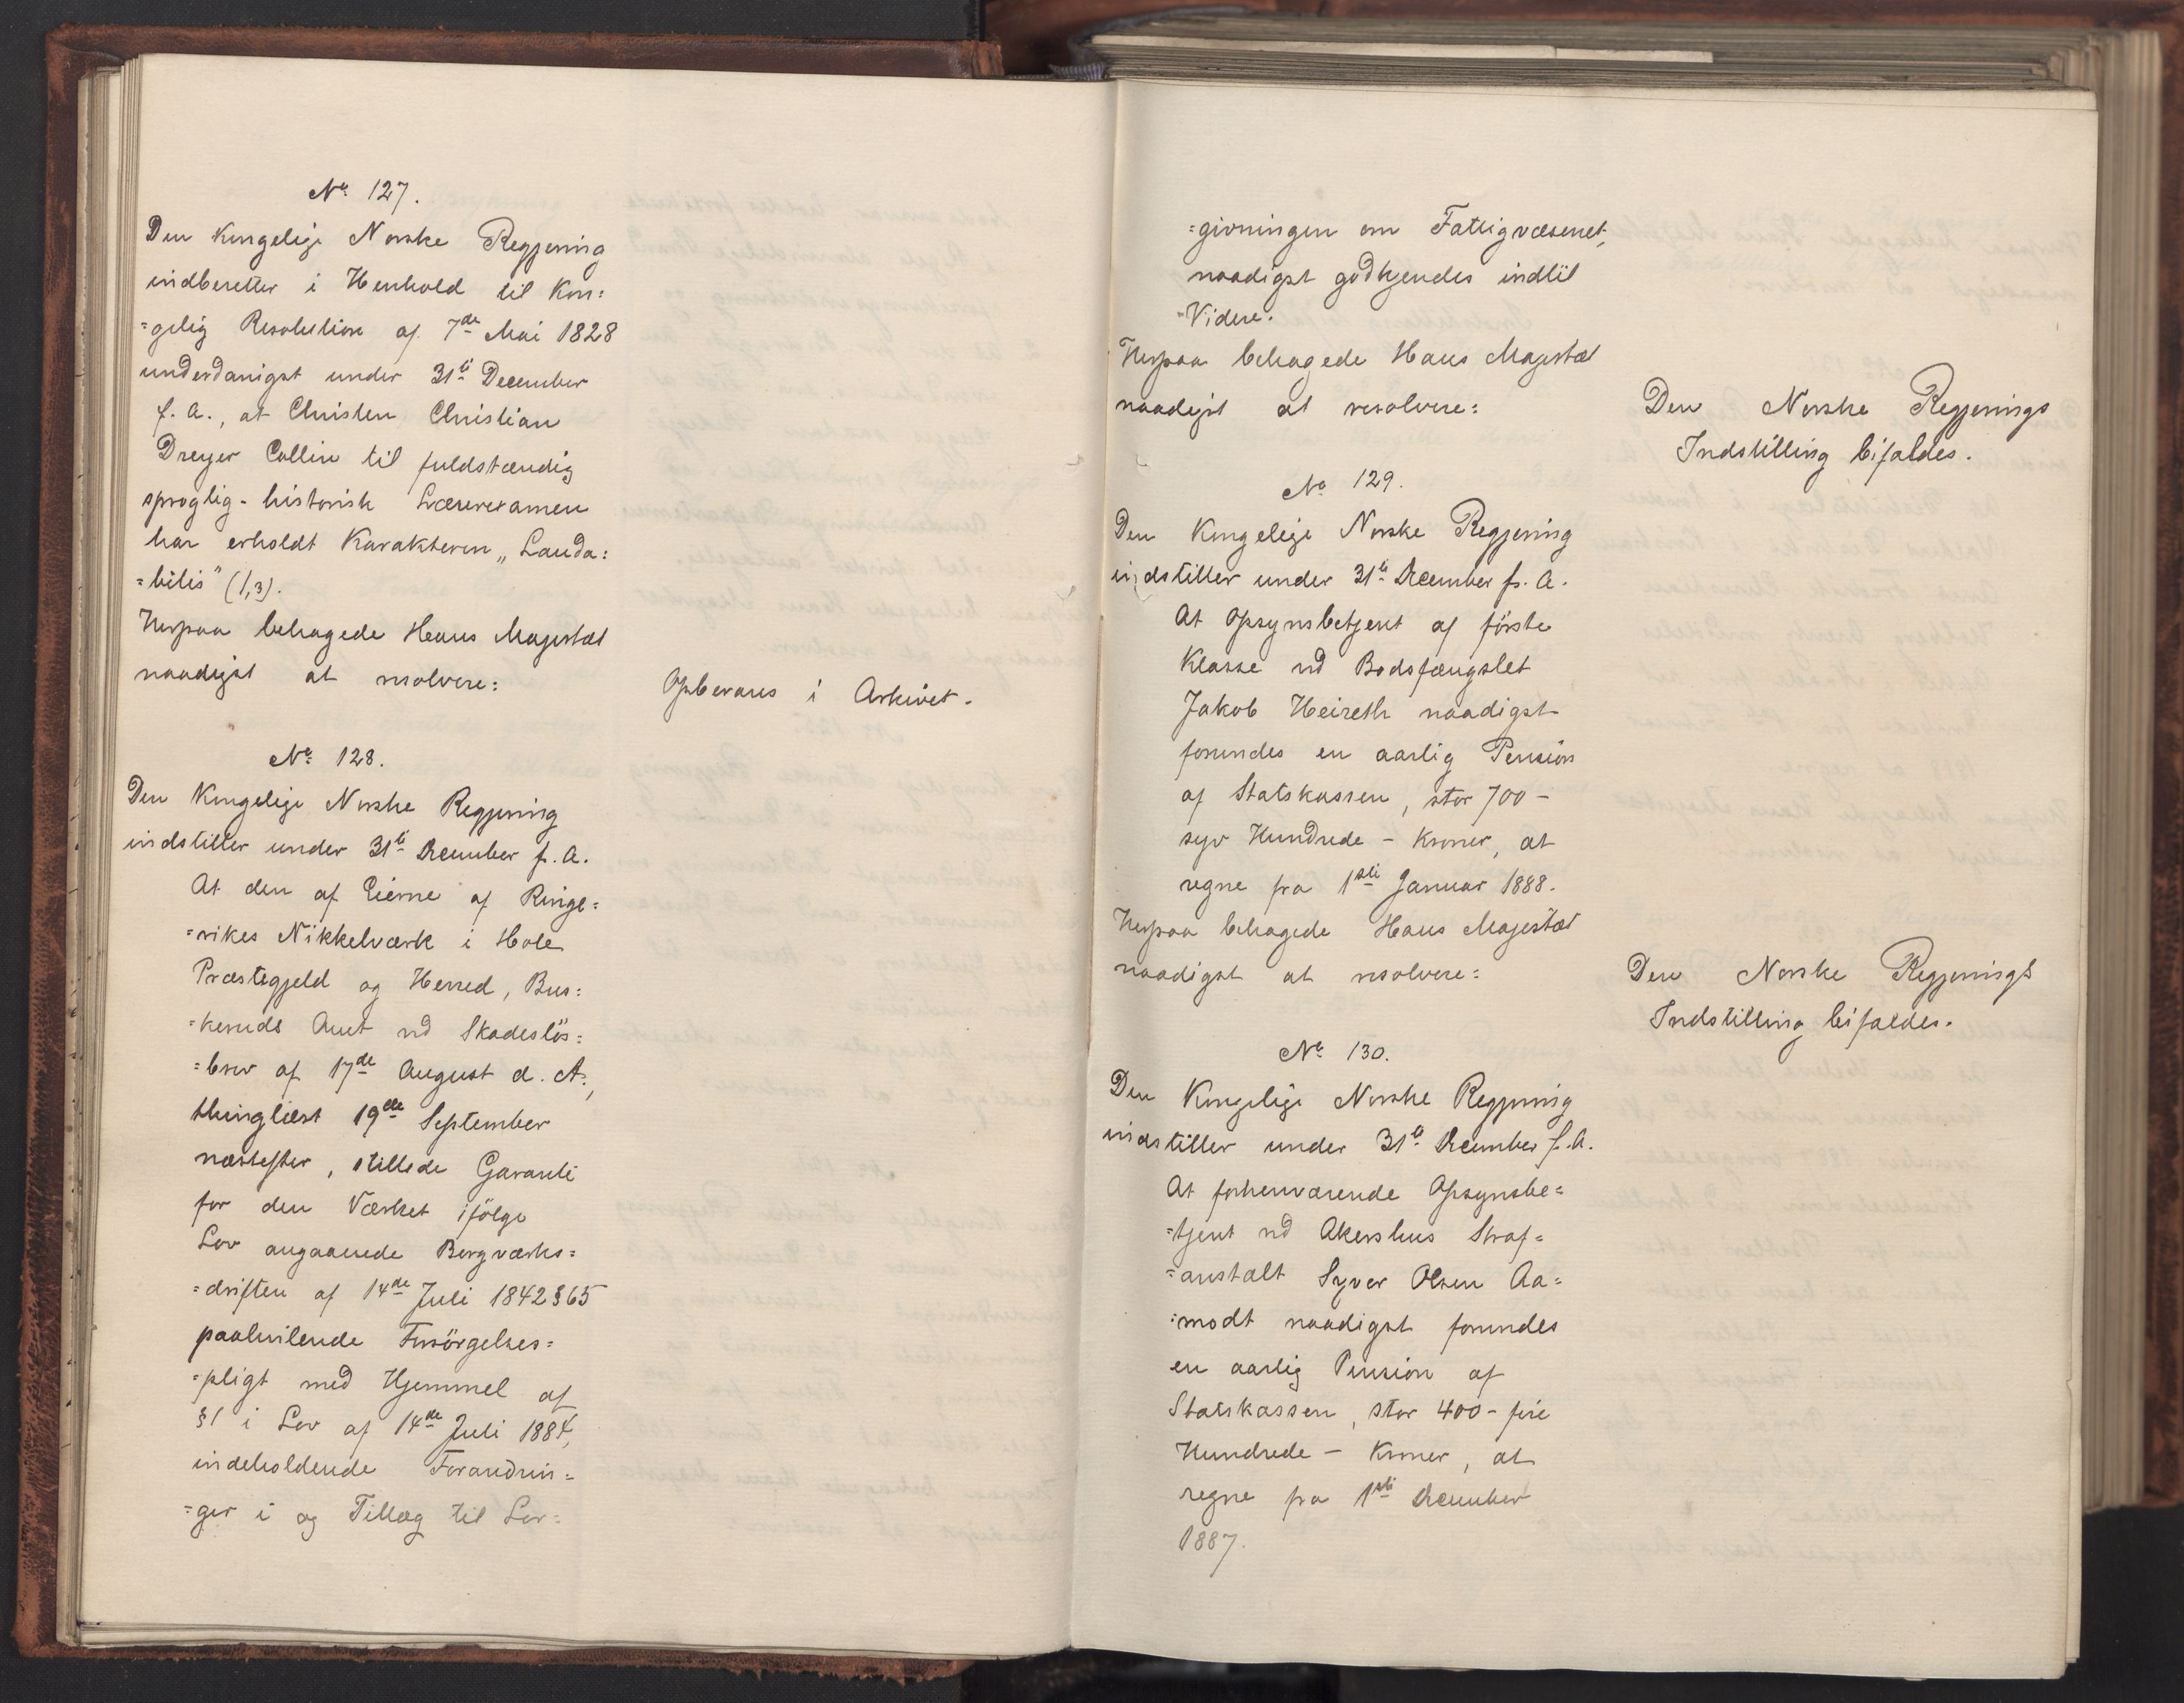 No 127.
Den Kongelige Norske Regjering
indberetter i Henhold til Kon=
=gelig Resolution af 7de Mai 1828
underdanigst under 31te December
f. A., at Christen Christian
Dreyer Collin til fuldstændig
sproglig-historisk Lærerexamen
har erholdt Karakteren „Lauda=
=bilis" (1,3).
Herpaa behagede Hans Majestæt
naadigst at resolvere:
Opbevares i Arkivet.
No 128.
Den Kongelige Norske Regjering
indstiller under 31te December f. A.
At den af Eierne af Ringe=
=rikes Nikkelværk i Hole
Præstegjeld og Herred, Bus=
=keruds Amt ved Skadeslös=
=brev af 17de August d. A.,
thinglæst 19de September
næstefter, stillede Garanti
for den Værket ifölge
Lov angaaende Bergværks=
=driften af 14de Juli 1842 § 65
paahvilende Forsörgelses=
=pligt med Hjemmel af
§ 1 i Lov af 14de Juli 1884,
indeholdende Forandrin=
=ger i og Tillæg til Lov=
=givningen om Fattigvæsenet,
naadigst godkjendes indtil
Videre.
Herpaa behagede Hans Majestæt
naadigst at resolvere:
Den Norske Regjerings
Indstilling bifaldes.
No 129.
Den Kongelige Norske Regjering
indstiller under 31te December f. A.
At Opsynsbetjent af förste
Klasse ved Bodsfængslet
Jakob Heireth naadigst
forundes en aarlig Pension
af Statskassen, stor 700 –
syv Hundrede – Kroner, at
regne fra 1ste Januar 1888.
Herpaa behagede Hans Majestæt
naadigst at resolvere:
Den Norske Regjerings
Indstilling bifaldes.
No 130.
Den Kongelige Norske Regjering
indstiller under 31te December f. A.
At forhenværende Opsynsbe=
=tjent ved Akershus Straf=
=anstalt Syver Olsen Aa=
=modt naadigst forundes
en aarlig Pension af
Statskassen, stor 400 – fire
Hundrede – Kroner, at
regne fra 1ste December
1887.